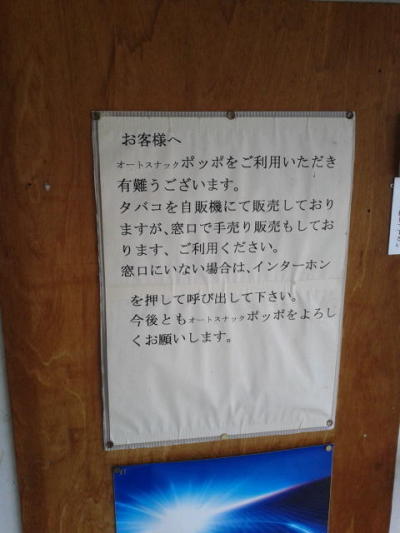 お客様へ
オートスナックポッポをご利用いただき
有難うございます。
タバコを自販機にて販売しており
ますが、窓口で手売り販売もしてお
ります、ご利用ください。
窓口にいない場合は、インターホン
を押して呼び出して下さい。
今後ともオートスナックポッポをよろし
くお願いします。